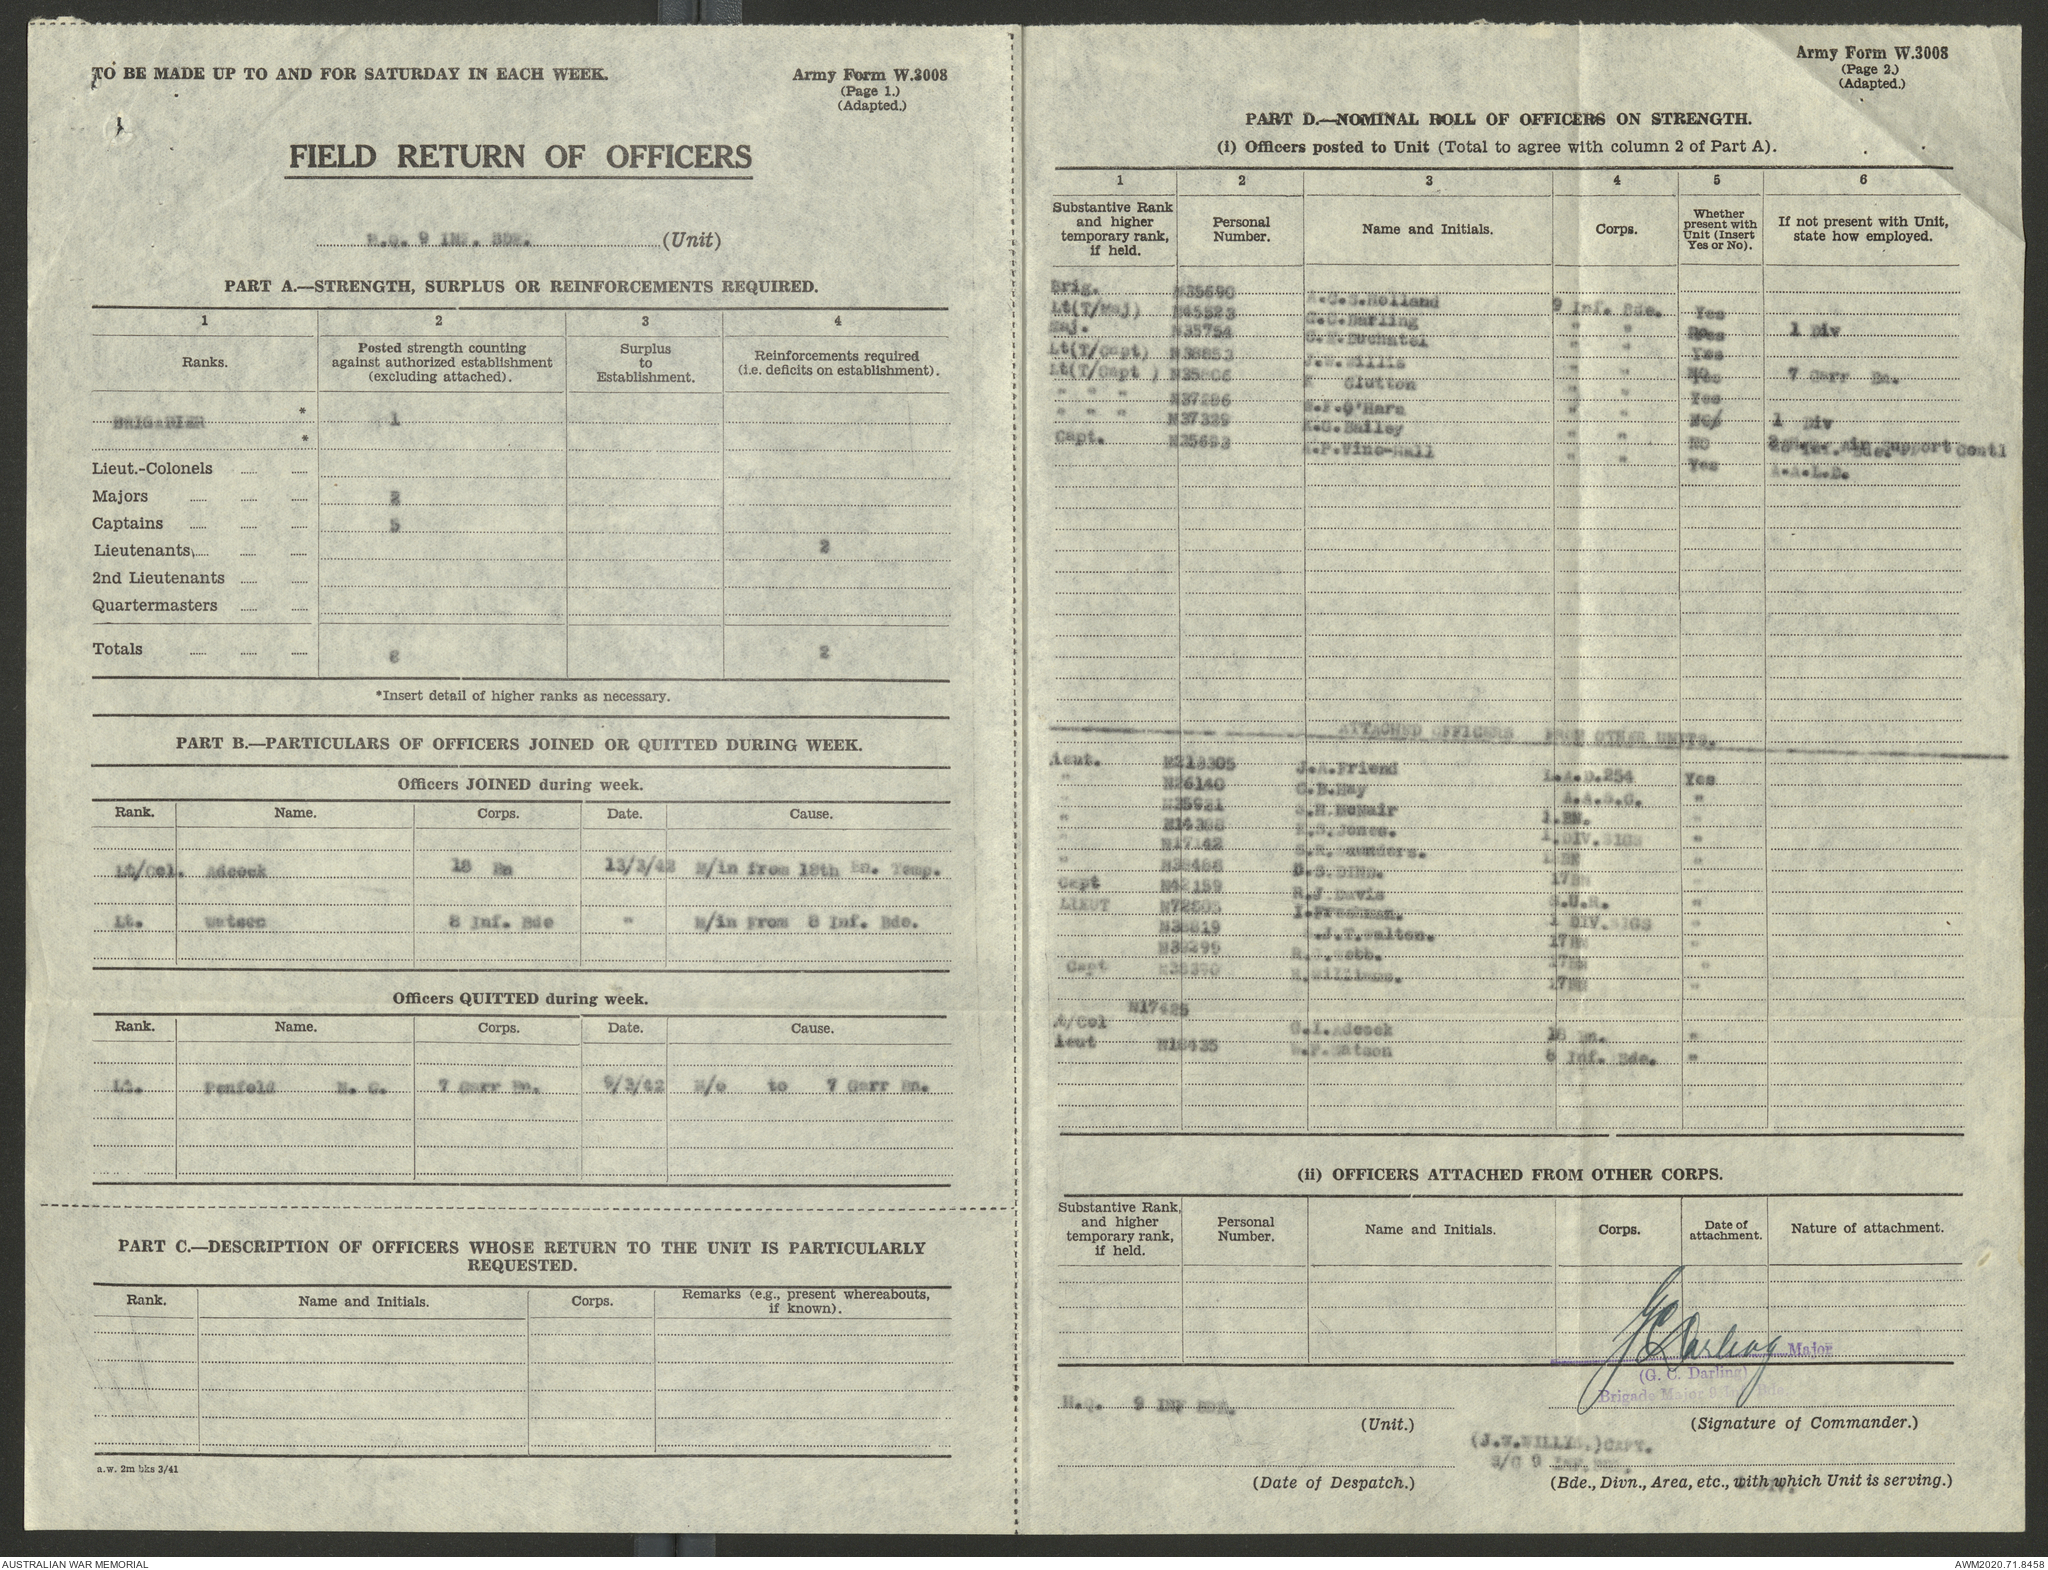 TO BE MADE UP TO AND FOR SATURDAY IN EACH WEEK.
Army Form W.3008
(Page 1.)
(Adapted.)
FIELD RETURN OF OFFICERS
H.Q. 9 INF. BDE. (Unit)
PART A.—STRENGTH, SURPLUS OR REINFORCEMENTS REQUIRED.
1 2 3 4
Ranks. Posted strength counting against authorized establishment (excluding attached). Surplus to Establishment. Reinforcements required (i.e. deficits on establishment).
BRIGADIER * 1
*
Lieut.-Colonels
Majors 2
Captains 5
Lieutenants 2
2nd Lieutenants
Quartermasters
Totals 8 2
*Insert detail of higher ranks as necessary.
PART B.—PARTICULARS OF OFFICERS JOINED OR QUITTED DURING WEEK.
Officers JOINED during week.
Rank. Name. Corps. Date. Cause.
Lt/Col. Adcock 18 Bn 13/3/42 M/in from 18th Bn. Temp.
Lt. Watson 8 Inf. Bde " M/in From 8 Inf. Bde.
Officers QUITTED during week.
Rank. Name. Corps. Date. Cause.
Lt. Penfold N. C. 7 Garr Bn. 9/3/42 M/o to 7 Garr Bn.
PART C.—DESCRIPTION OF OFFICERS WHOSE RETURN TO THE UNIT IS PARTICULARLY
REQUESTED.
Rank. Name and Initials. Corps. Remarks (e.g., present whereabouts, if known).
a.w. 2m bks 3/41
Army Form W.3008
(Page 2.)
(Adapted.)
PART D.—NOMINAL ROLL OF OFFICERS ON STRENGTH.
(i) Officers posted to Unit (Total to agree with column 2 of Part A).
1 2 3 4 5 6
Substantive Rank and higher temporary rank, if held. Personal Number. Name and Initials. Corps. Whether present with Unit (Insert Yes or No). If not present with Unit, state how employed.
Brig. N35690 A.C.S.Holland 9 Inf. Bde. Yes
Lt(T/Maj) G.C.Darling " "
Maj. N35754 " " 1 Div
Lt(T/Capt) J.W.Willis " " Yes
Lt(T/Capt ) Clutton " " 7 Garr Bn.
" " " N37286 O'Hara " " Yes
" " " N37329 Bailey " " 1 Div
Capt. N25693 Vine-Hall " " Air Support Contl
Yes A.A.L.D.
ATTACHED OFFICERS FROM OTHER UNITS.
Lieut. J.A.Friend L.A.D.254 Yes
" N26140 Hay A.A.S.C. "
" McNair "
" Jones. 1.DIV.SIGS "
" N17142 S.R.Saunders. "
" 17BN "
Capt N42159 R.J.Davis S.U.R. "
LIEUT I.Freshman. 1 DIV.SIGS "
J.T.Walton. 17BN "
Webb. 17BN "
Capt Williams. 17BN "
Lt/Col N17425 G.I.Adcock 18 Bn. "
Lieut N18435 W.P.Watson 8 Inf. Bde. "
(ii) OFFICERS ATTACHED FROM OTHER CORPS.
Substantive Rank, and higher temporary rank, if held. Personal Number. Name and Initials. Corps. Date of attachment. Nature of attachment.
GCDarling Major
(G. C. Darling)
Brigade Major 9 Inf Bde.
H.Q. 9 INF BDE.
(Unit.) (Signature of Commander.)
(J.W.WILLIS.)CAPT.
S/C 9 Inf. Bde.
(Date of Despatch.) (Bde., Divn., Area, etc., with which Unit is serving.)
AUSTRALIAN WAR MEMORIAL
AWM2020.71.8458